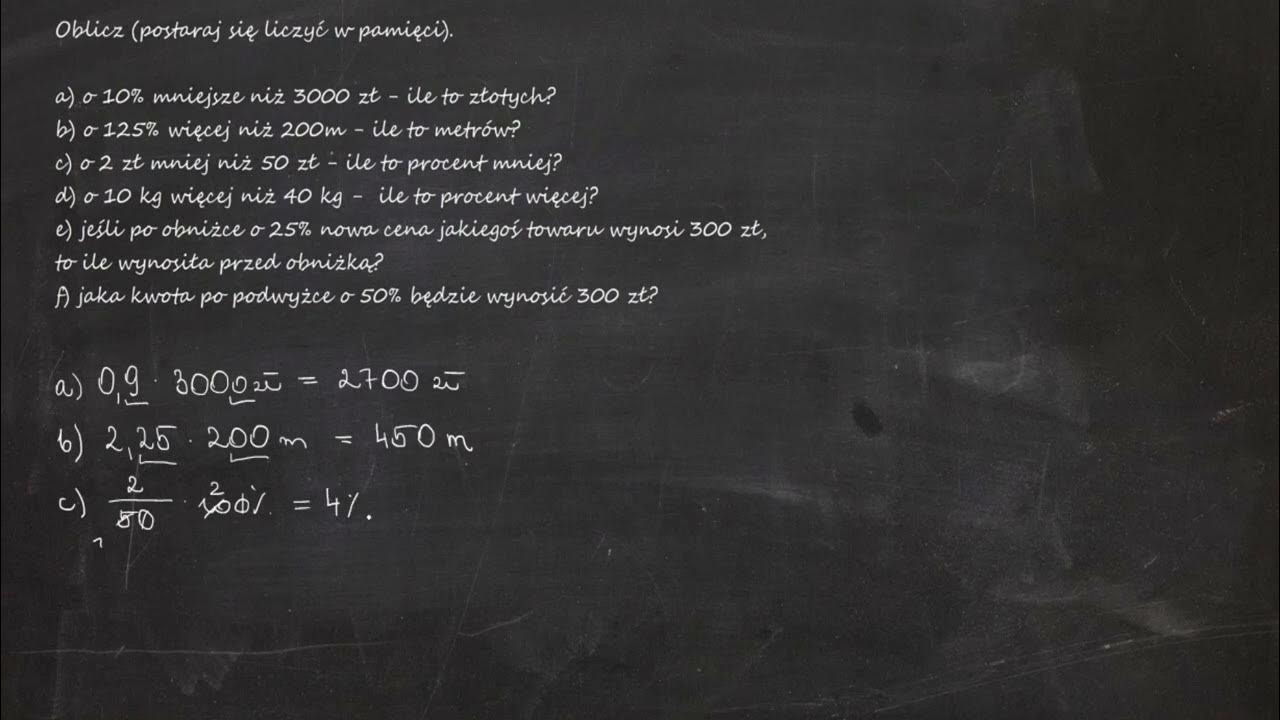 Oblicz (postaraj się liczyć w pamięci).
a) o 10% mniejsze niż 3000 zł - ile to złotych?
b) o 125% więcej niż 200m - ile to metrów?
c) o 2 zł mniej niż 50 zł - ile to procent mniej?
d) o 10 kg więcej niż 40 kg - ile to procent więcej?
e) jeśli po obniżce o 25% nowa cena jakiegoś towaru wynosi 300 zł,
to ile wynosiła przed obniżką?
f) jaka kwota po podwyżce o 50% będzie wynosić 300 zł?
a) 0,9 · 3000 zł = 2700 zł
b) 2,25 · 200 m = 450 m
2 2
c) — · 100% = 4%.
50
1